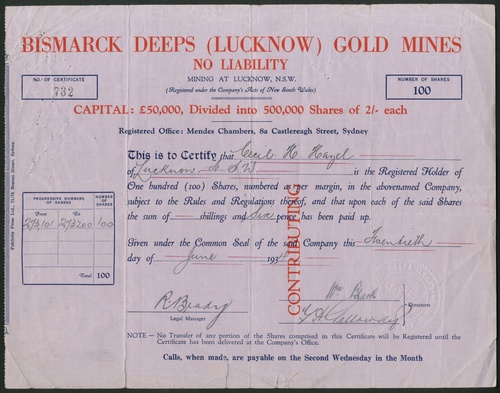 BISMARCK DEEPS (LUCKNOW) GOLD MINES
NO LIABILITY
MINING AT LUCKNOW, N.S.W.
(Registered under the Company's Acts of New South Wales)
NO. OF CERTIFICATE
732
NUMBER OF SHARES
100
CAPITAL: £50,000, Divided into 500,000 Shares of 2/- each
Registered Office: Mendes Chambers, 8a Castlereagh Street, Sydney
This is to Certify that Cecil H. Hazel
of Lucknow N.S.W. is the Registered Holder of
One hundred (100) Shares, numbered as per margin, in the abovenamed Company,
subject to the Rules and Regulations thereof, and that upon each of the said Shares
the sum of shillings and six pence has been paid up.
Given under the Common Seal of the said Company this Twentieth
day of June 1934
CONTRIBUTING
PROGRESSIVE NUMBERS OF SHARES
NUMBER OF SHARES
From To
273101 273200 100
Total 100
Publicity Press Ltd, Sydney.
R Brady
Legal Manager
Wm Black
Galloway
Directors
NOTE — No Transfer of any portion of the Shares comprised in this Certificate will be Registered until the
Certificate has been delivered at the Company's Office.
Calls, when made, are payable on the Second Wednesday in the Month